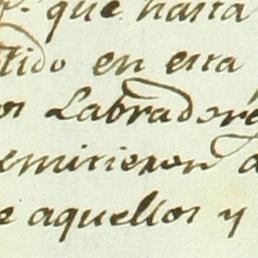 que hasta
tido en esta
os Labradore
emitieron a
e aquellos y